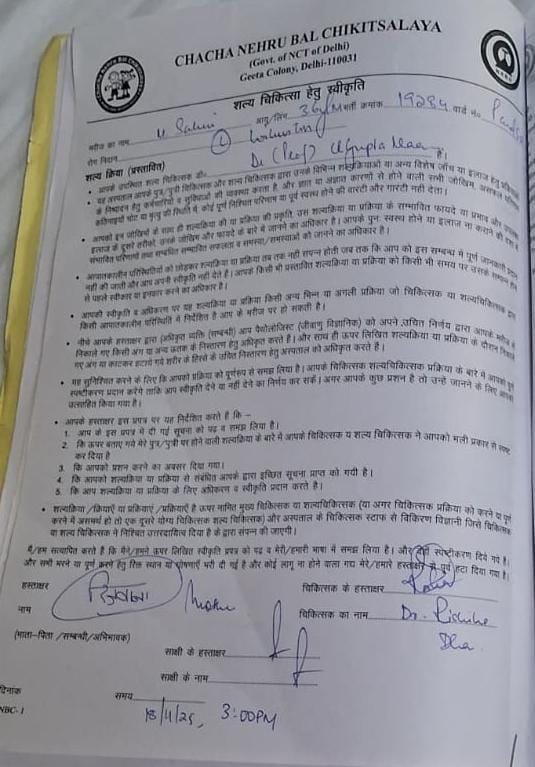 CHACHA NEHRU BAL CHIKITSALAYA
(Govt. of NCT of Delhi)
Geeta Colony, Delhi-110031
शल्य चिकित्सा हेतु स्वीकृति
मरीज का नाम आयु/लिंग भर्ती क्रमांक 19284 वार्ड नं०
रोग निदान
शल्य क्रिया (प्रस्तावित)
• आपके उपस्थित शल्य चिकित्सक डॉ० Dr (Prof) हैं।
• यह अस्पताल आपके पुत्र/पुत्री चिकित्सक और शल्य चिकित्सक द्वारा उनके विभिन्न शल्यक्रियाओं या अन्य विशेष जाँच या इलाज हेतु
के निष्पादन हेतु कर्मचारियों व सुविधाओं की व्यवस्था करता है, और ज्ञात या अज्ञात कारणों से होने वाली सभी जोखिम, असफल
कठिनाइयाँ चोट या मृत्यु की स्थिति में कोई पूर्ण निश्चित परिणाम या पूर्ण स्वस्थ होने की वारंटी और गारंटी नहीं देता।
• आपको इन जोखिमों के साथ ही शल्यक्रिया की या प्रक्रिया की प्रकृति, उस शल्यक्रिया या प्रक्रिया के सम्भावित फायदे या प्रभाव और
इलाज के दूसरे तरीको, उनके जोखिम और फायदे के बारे में जानने का अधिकार है। आपके पुनः स्वस्थ होने या इलाज ना कराने की
संभावित परिणामों तथा सम्बंधित सम्भावित सफलता व समस्या/समस्याओं को जानने का अधिकार है।
• आपातकालीन परिस्थितियों को छोड़कर शल्यक्रिया या प्रक्रिया तब तक नही सम्पन्न होती जब तक कि आप को इस सम्बन्ध में पूर्ण जानकारी प्रदान
नही की जाती और आप अपनी स्वीकृति नही देते है। आपके किसी भी प्रस्तावित शल्यक्रिया या प्रक्रिया को किसी भी समय पर उसके सम्पन्न होने
से पहले स्वीकार या इनकार करने का अधिकार है।
• आपकी स्वीकृति व अधिकरण पर यह शल्यक्रिया या प्रक्रिया किसी अन्य भिन्न या अगली प्रक्रिया जो चिकित्सक या शल्यचिकित्सक द्वारा
किसी आपातकालीन परिस्थिति में निर्देशित है आप के मरीज पर हो सकती है।
• नीचे आपके हस्ताक्षर द्वारा (अधिकृत व्यक्ति (सम्बन्धी) आप पेथोलोजिस्ट (जीवाणु विज्ञानिक) को अपने उचित निर्णय द्वारा आपके मरीज में
निकाले गए किसी अंग या अन्य ऊतक के निस्तारण हेतु अधिकृत करते है। और साथ ही ऊपर लिखित शल्यक्रिया या प्रक्रिया के दौरान निकाले
गए अंग या काटकर हटाये गये शरीर के हिस्से के उचित निस्तारण हेतु अस्पताल को अधिकृत करते है।
• यह सुनिश्चित करने के लिए कि आपको प्रक्रिया को पूर्णरुप से समझ लिया है। आपके चिकित्सक शल्यचिकित्सक प्रक्रिया के बारे में आपको पूर्ण
स्पष्टीकरण प्रदान करेंगे ताकि आप स्वीकृति देने या नही देने का निर्णय कर सकें। अगर आपके कुछ प्रशन है तो उन्हे जानने के लिए आपको
उत्साहित किया गया है।
• आपके हस्ताक्षर इस प्रपत्र पर यह निर्देशित करते है कि –
1. आप के इस प्रपत्र में दी गई सूचना को पढ़ व समझ लिया है।
2. कि ऊपर बताए गये मेरे पुत्र/पुत्री पर होने वाली शल्यक्रिया के बारे में आपके चिकित्सक य शल्य चिकित्सक ने आपको भली प्रकार से स्पष्ट
कर दिया है
3. कि आपको प्रशन करने का अवसर दिया गया।
4. कि आपको शल्यक्रिया या प्रक्रिया से संबंधित आपके द्वारा इच्छित सूचना प्राप्त को गयी है।
5. कि आप शल्यक्रिया या प्रक्रिया के लिए अधिकरण व स्वीकृति प्रदान करते है।
• शल्यक्रिया /क्रियाएँ या प्रक्रियाएं /प्रक्रियाएँ है ऊपर नामित मुख्य चिकित्सक या शल्यचिकित्सक (या अगर चिकित्सक प्रक्रिया को करने या पूर्ण
करने में असमर्थ हो तो एक दूसरे योग्य चिकित्सक शल्य चिकित्सक) और अस्पताल के चिकित्सक स्टाफ से विकिरण विज्ञानी जिसे चिकित्सक
या शल्य चिकित्सक ने निश्चित उत्तरदायित्व दिया है के द्वारा संपन्न की जाएगी।
मैं/हम सत्यापित करते है कि मैंने/हमने ऊपर लिखित स्वीकृति प्रपत्र को पढ़ व मेरी/हमारी भाषा में समझ लिया है। और स्पष्टीकरण दिये गये है।
और सभी भरने या पूर्ण करने हेतु रिक्त स्थान या घोषणाएँ भरी दी गई है और कोई लागू ना होने वाला गया मेरे/हमारे हस्ताक्षर से पूर्व हटा दिया गया है।
हस्ताक्षर चिकित्सक के हस्ताक्षर
नाम चिकित्सक का नाम Dr.
(माता-पिता /सम्बन्धी/अभिभावक)
साक्षी के हस्ताक्षर
साक्षी के नाम
दिनांक समय
18/4/25, 3:00PM
NBC-1